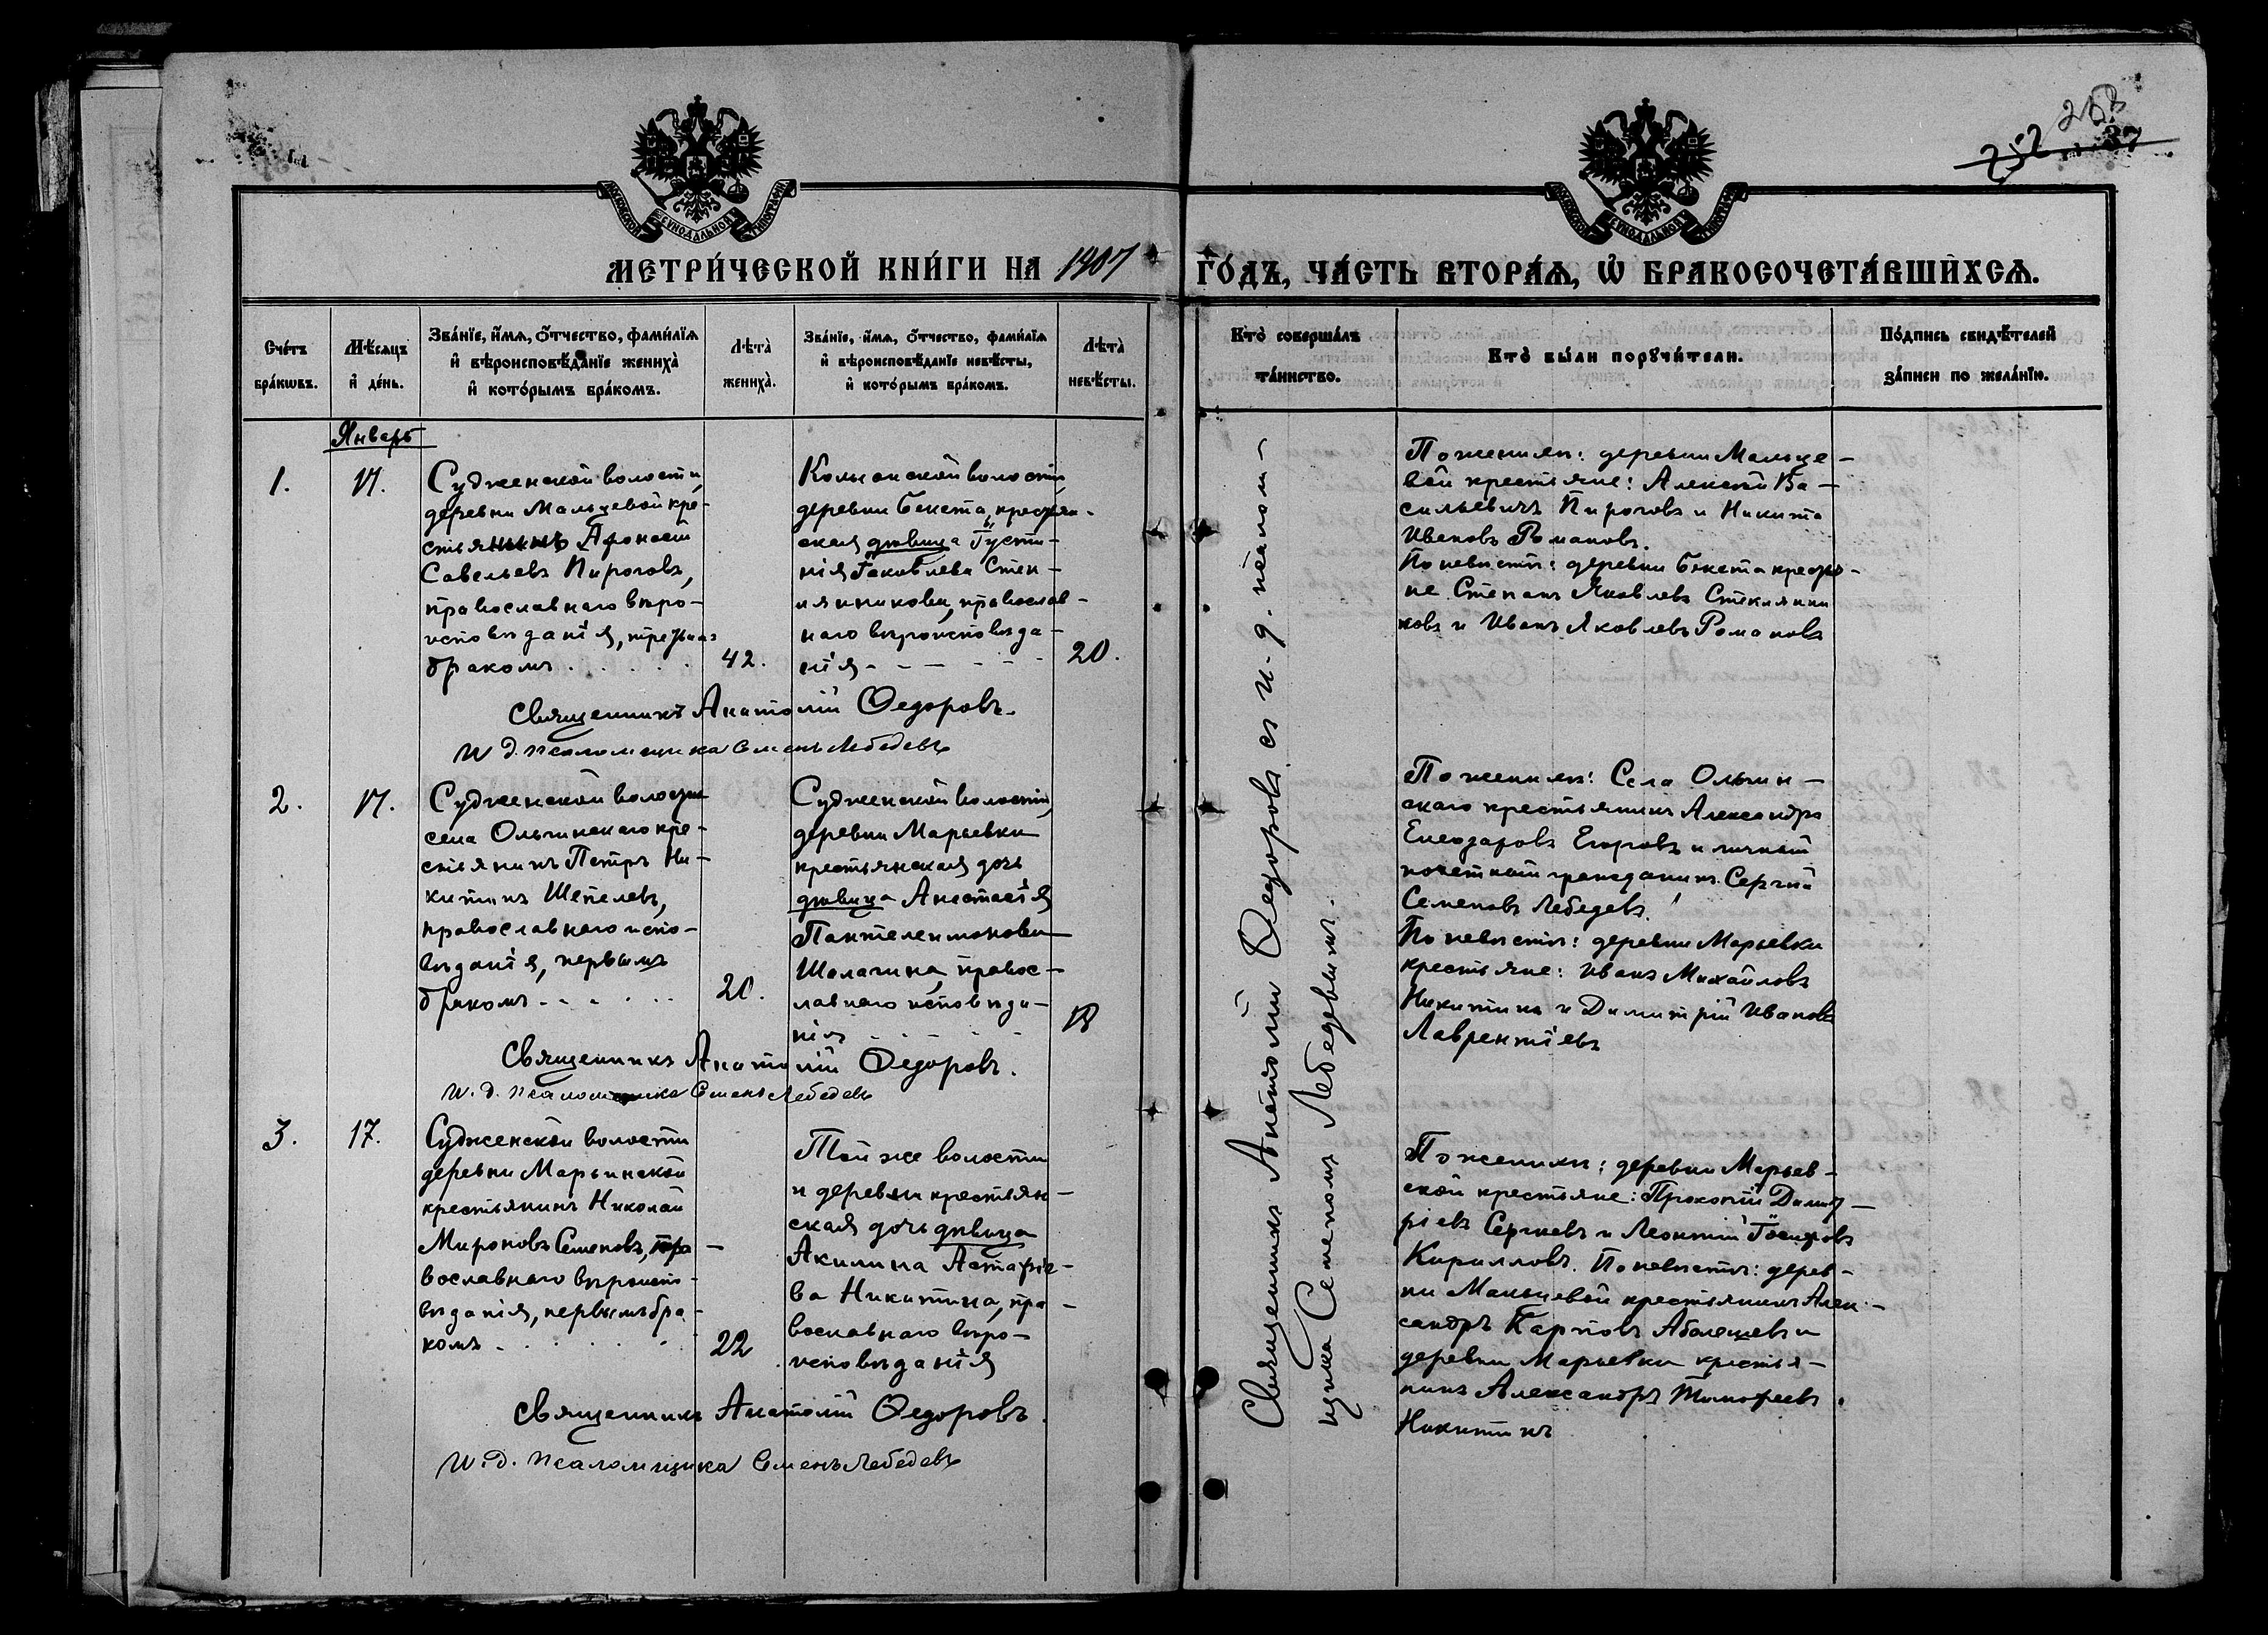 253
252 37
МОСКОВСКОЙ СѴНОДАЛЬНОЙ ТИПОГРАФІИ
МОСКОВСКОЙ СѴНОДАЛЬНОЙ ТИПОГРАФІИ
МЕТРИ́ЧЕСКОЙ КНИ́ГИ НА 1907 ГО́ДЪ, ЧА́СТЬ ВТОРА́Ѧ, Ѡ БРАКОСОЧЕТА́ВШИХСѦ.
Сче́тъ
бра́кѡвъ.
Мѣ́сяцъ
и҆ де́нь.
Зва́нїе, и҆́мѧ, ѻ҆́тчество, фами́лїѧ
и҆ вѣроисповѣ́данїе жениха̀
и҆ кото́рымъ бра́комъ.
Лѣта̀
жениха̀.
Зва́нїе, и҆́мѧ, ѻ҆́тчество, фами́лїѧ
и҆ вѣроисповѣ́данїе невѣ́сты,
и҆ кото́рымъ бра́комъ.
Лѣта̀
невѣ́сты.
Кто̀ соверша́лъ
та́инство.
Кто̀ бы́ли порꙋчи́тели.
По́дпись свидѣ́телей
за́писи по жела́нїю.
Январь
1.
17.
Судженской волости,
деревни Мальцевой кре-
стьянинъ Афонасій
Савельевъ Пироговъ,
православнаго вѣро-
исповѣданія, третьимъ
бракомъ . . . . .
42.
волости,
деревни Бекета, крестьян-
ская дѣвица Густи-
нія Іаковлева Стек-
лянникова, православ-
наго вѣроисповѣда-
нія - - - - - -
20.
Поженихѣ: деревни Мальце-
вой крестьяне: Алексѣй Ва-
сильевичъ Пироговъ и Никита
Ивановъ Романовъ.
Поневѣстѣ: деревни Бекета крестья-
не Степанъ Яковлевъ Стеклянни
ковъ и Иванъ Яковлевъ Романовъ
Священникъ Анатолій Ѳедоровъ.
И д. псаломщика Семенъ Лебедевъ
2.
17.
Судженской волости
села Ольгинскаго кре-
стьянинъ Петръ Ни-
китинъ Шепелевъ,
православнаго испо-
вѣданія, первымъ
бракомъ - . - . . .
20.
Судженской волости,
деревни Марьевки
крестьянская дочь
дѣвица Анастасія
Пантелеимонова
Шалагина, правос-
лавнаго исповѣда-
нія - . - . - -
18
Поженихѣ: Села Ольгин-
скаго крестьянинъ Александръ
Егоровъ и личный
почетный гражданинъ Сергѣй
Семеновъ Лебедевъ.
Поневѣстѣ: деревни Марьевки
крестьяне: Иванъ Михайловъ
Никитинъ и Димитрій Ивановъ
Лаврентіевъ
Священникъ Анатолій Ѳедоровъ.
И. д. псаломщика Семенъ Лебедевъ
3.
17.
Судженской волости
деревни Марьинской
крестьянинъ Николай
Мироновъ Семеновъ, пра-
вославнаго вѣроиспо-
вѣданія, первымъ бра-
комъ . . . . . .
22
Той же волости
и деревни крестьян-
ская дочь дѣвица
Акилина Астафіе-
ва Никитина, пра-
вославнаго вѣро-
исповѣданія
Поженихѣ: деревни Марьев-
ской крестьяне: Прокопій Димит-
ріевъ Сергѣевъ и Леонтій
Кирилловъ. Поневѣстѣ: дерев-
ни Мальцевой крестьянинъ Алек-
сандръ Карповъ и
деревни Марьевки крестья-
нинъ Александръ Тимофеевъ
Никитинъ
Священникъ Анатолій Ѳедоровъ.
И. д. псаломщика Семенъ Лебедевъ
Священникъ Анатолій Ѳедоровъ съ и. д. псалом-
щика Семеномъ Лебедевымъ.